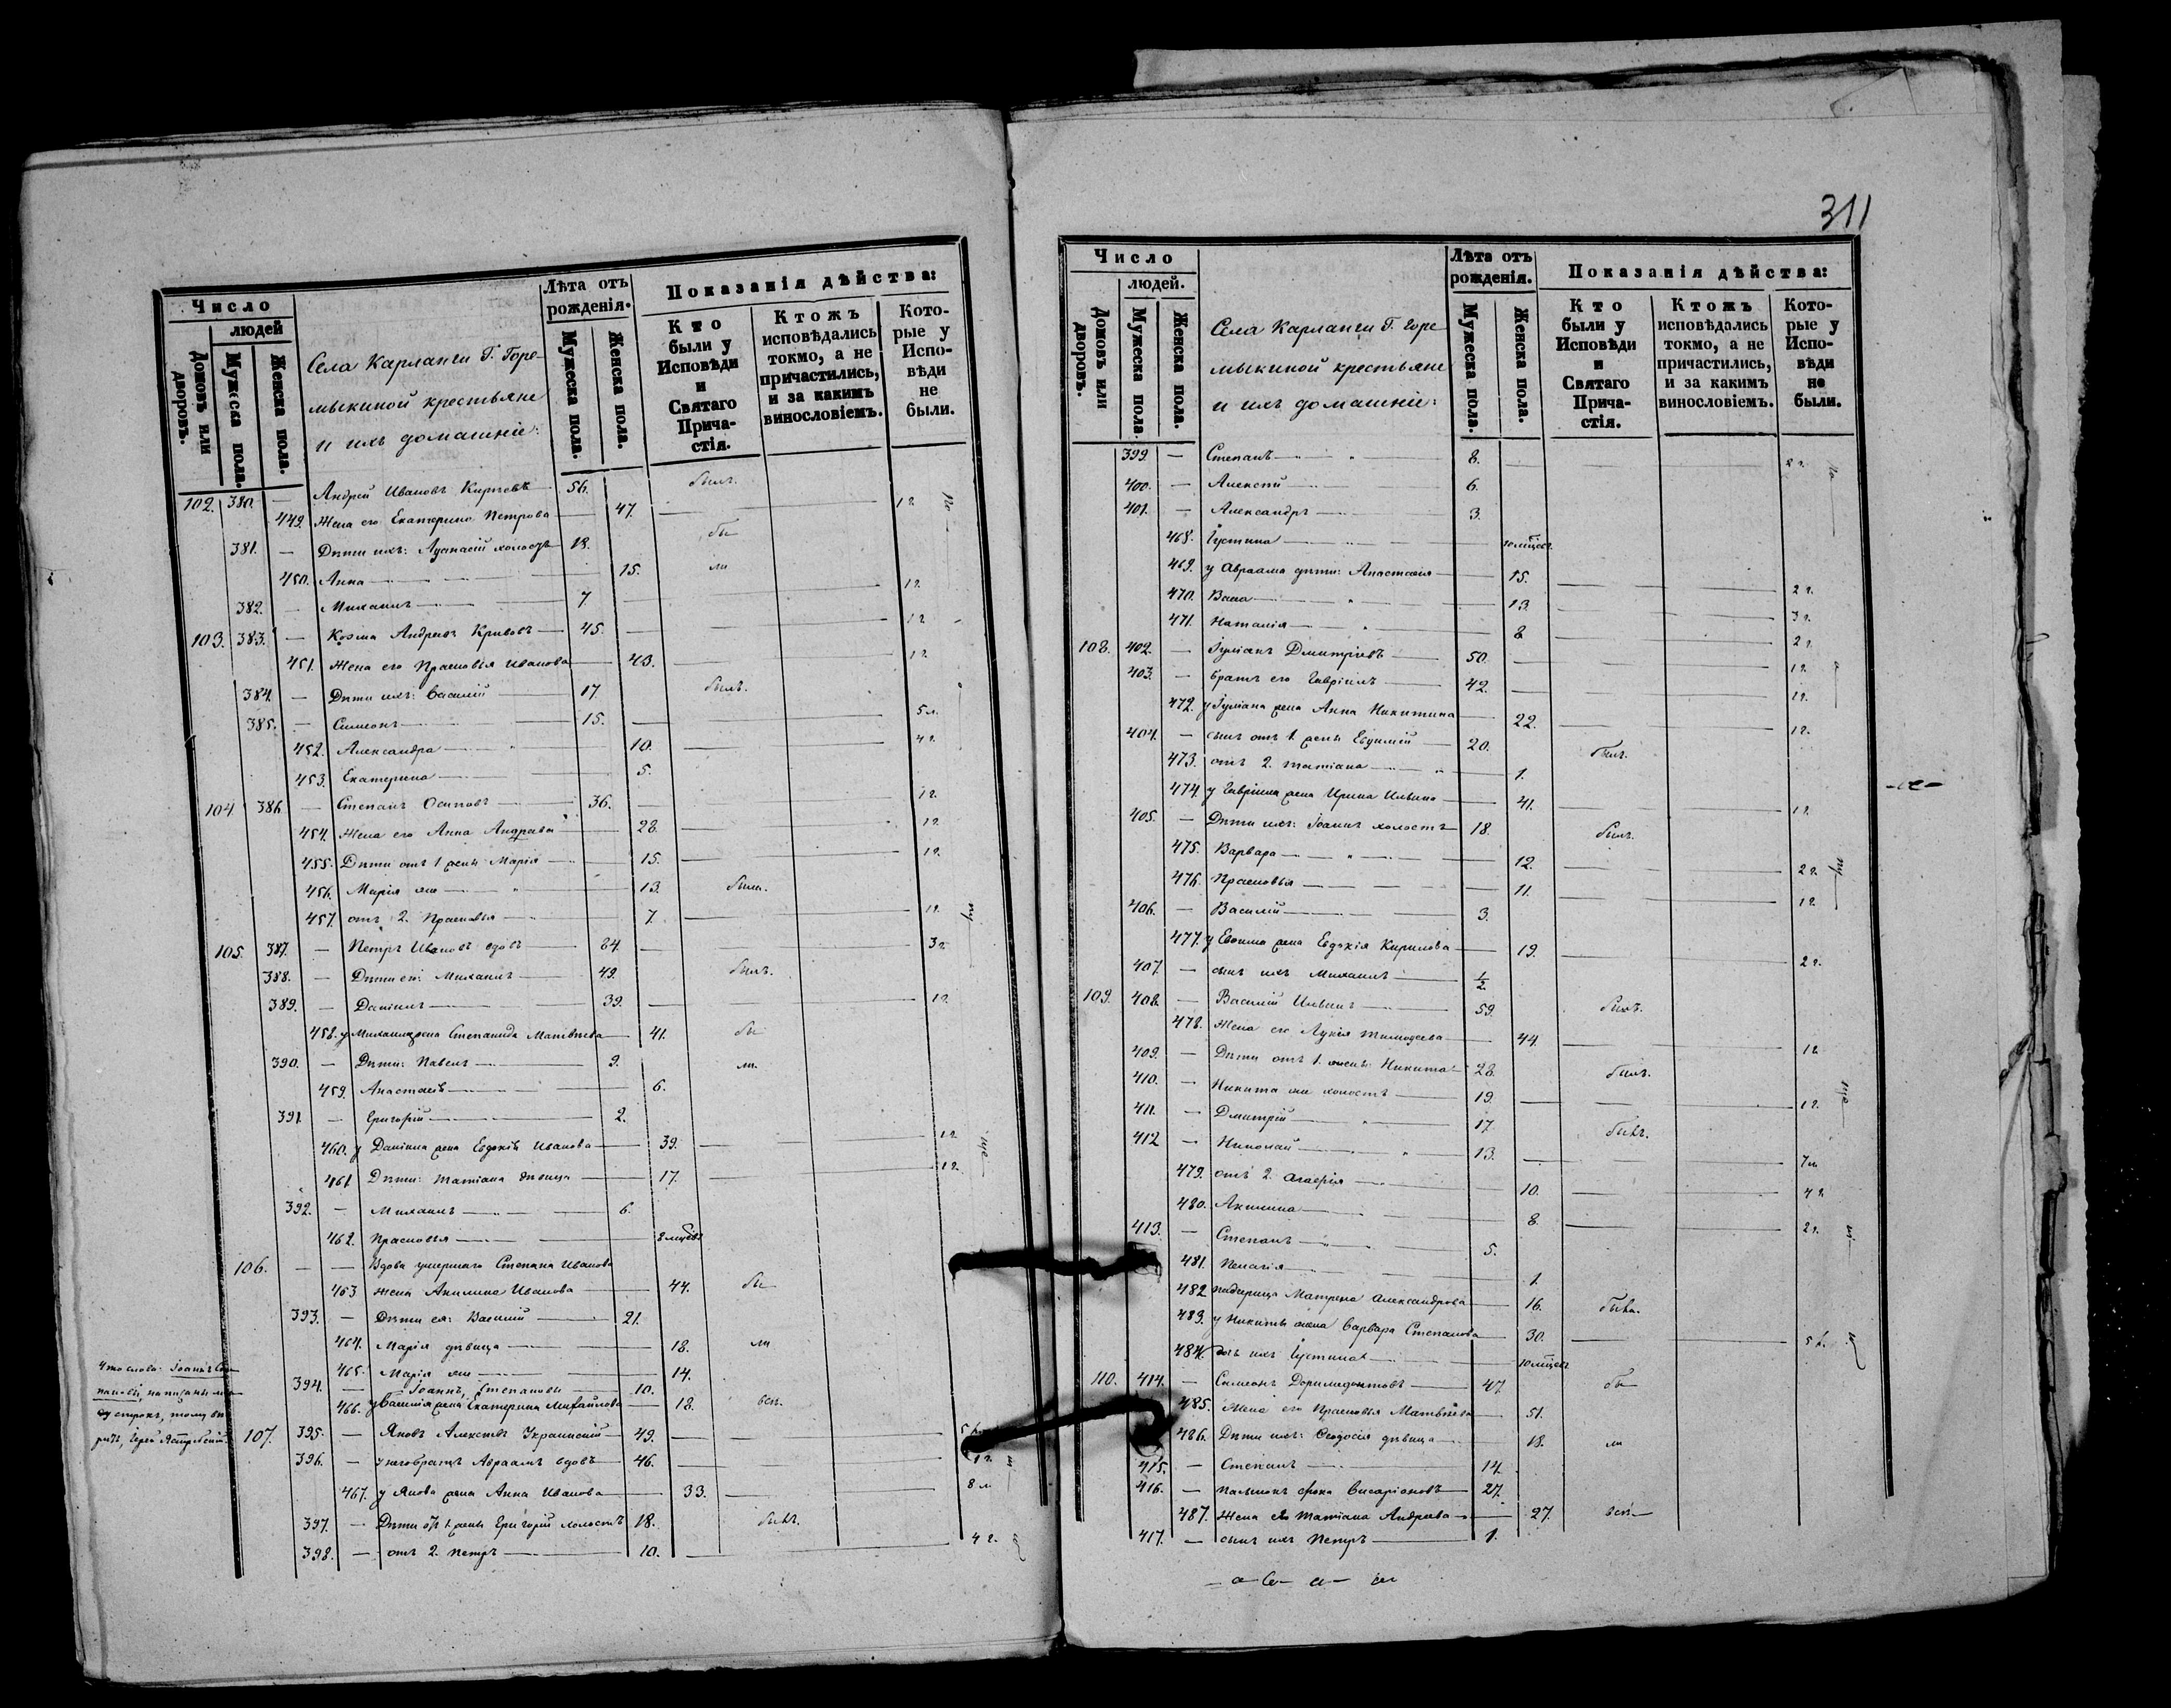 Число
людей
Домовъ или дворовъ.
Мужеска пола.
Женска пола.
Села Карланги Г. Горе-
мыкиной крестьяне
и ихъ домашніе:
Лѣта отъ рожденія.
Мужеска пола.
Женска пола.
Показанія дѣйства:
Кто были у Исповѣди и Святаго Прича-стія.
Ктожъ исповѣдались токмо, а не причастились, и за какимъ винословіемъ.
Кото-рые у Испо-вѣди не были.
102. 380. — Андрей Ивановъ 56. былъ.
449. Жена его Екатерина Петрова 47. 1 г.
381. — Дѣти ихъ: Аѳанасій холостъ 18. бы
450. Анна 15. ли
382. — Михаилъ 7. 1 г.
103. 383. — Козма Андреевъ Кривовъ 45. 1 г.
451. Жена его Прасковья Иванова 43. 1 г.
384. — Дѣти ихъ: Василій 17. былъ.
385. — Симеонъ 15. 5 л.
452. Александра 10. 4 г.
453. Екатерина 5.
104. 386. — Степанъ Осиповъ 36. 1 г.
454. Жена его Анна Андреева 28. 1 г.
455. Дѣти отъ 1 жены Марія 15. 1 г.
456. Марія же 13. была.
457. отъ 2. Прасковья 7. 1 г.
105. 387. — Петръ Ивановъ вдовъ 84. 3 г.
388. — Дѣти его: Михаилъ 49. былъ.
389. — Даніилъ 39. 1 г.
458. у Михаила жена Степанида Матвѣева 41. бы
390. — Дѣти: Павелъ 9. ли.
459. Анастасія 6.
391. — Григорій 2.
460. у Даніила жена Евдокія Иванова 39. 1 г.
461. Дѣти: Татіана дѣвица 17. 1 г.
392. — Михаилъ 6.
462. Прасковья 8 мѣсяц.
106. — — Вдова умершаго Степана Иванова
463 жена Акилина Иванова 44. бы
393. — Дѣти ея: Василій 21.
464. Марія дѣвица 18. ли
465. Марія же 14.
394. — Іоаннъ, Степановы 10.
466. у Василія жена Екатерина Михайлова 18. всѣ.
Что слова: Іоаннъ Сте-
пановы, написаны меж-
ду строкъ, тому вѣ-
рить, Іерей
107. 395. — Яковъ Алексѣевъ Украинскій 49.
396. — у него братъ Авраамъ вдовъ 46. 1 г.
467. у Якова жена Анна Иванова 33. 8 л.
397. — Дѣти отъ 1 жены Григорій холостъ 18. былъ.
398. — отъ 2. Петръ 10. 4 г.
311
Число
людей.
Домовъ или дворовъ.
Мужеска пола.
Женска пола.
Села Карланги Г. Горе
мыкиной крестьяне
и ихъ домашніе:
Лѣта отъ рожденія.
Мужеска пола.
Женска пола.
Показанія дѣйства:
Кто были у Исповѣди и Святаго Прича-стія.
Ктожъ исповѣдались токмо, а не причастились, и за какимъ винословіемъ.
Кото-рые у Испо-вѣди не были.
399. — Степанъ 8. 2 г.
400. — Алексѣй 6.
401. — Александръ 3.
468. Іустина 10 мѣсяц.
469. у Авраама дѣти: Анастасія 15. 2 г.
470. Васса 13. 3 г.
471. Наталія 8 2 г.
108. 402. — Іуліанъ Дмитріевъ 50. 1 г.
403. — братъ его Гавріилъ 42. 1 г.
472. у Іуліана жена Анна Никитина 22. 1 г.
404. — сынъ отъ 1. жены Евѳимій 20. былъ.
473. отъ 2. Татіана 1.
474. у Гавріила жена Ирина Ильина 41. 1 г.
405. — Дѣти ихъ: Іоаннъ холостъ 18. былъ.
475. Варвара 12. 2 г.
476. Прасковья 11. 1 г.
406. — Василій 3.
477. у Евѳимія жена Евдокія Кирилова 19. 2 г.
407. — сынъ ихъ Михаилъ ½
109. 408. — Василій Ильинъ 59. былъ.
478. Жена его Лукія Тимоѳеева 44. 1 г.
409. — Дѣти отъ 1. жены: Никита 28. былъ.
410. — Никита же холостъ 19. 1 г.
411. — Дмитрій 17. былъ.
412 — Николай 13. 7 л.
479. отъ 2. Агаѳія 10. 4 г.
480. Акилина 8. 2 г.
413. — Степанъ 5.
481. Пелагія 1.
482 падчерица Матрена Александрова 16. была.
483. у Никиты жена Варвара Степанова 30.
484. дочь ихъ Іустина 10 мѣсяц.
110. 414. — Симеонъ Доримедонтовъ 47 бы
485. Жена его Прасковья Матвѣева 51.
486. Дѣти ихъ: Ѳеодосія дѣвица 18. ли
415. — Степанъ 14.
416. — Висаріоновъ 27.
487. Жена его Татіана Андреева 27. всѣ
417. — сынъ ихъ Петръ 1.